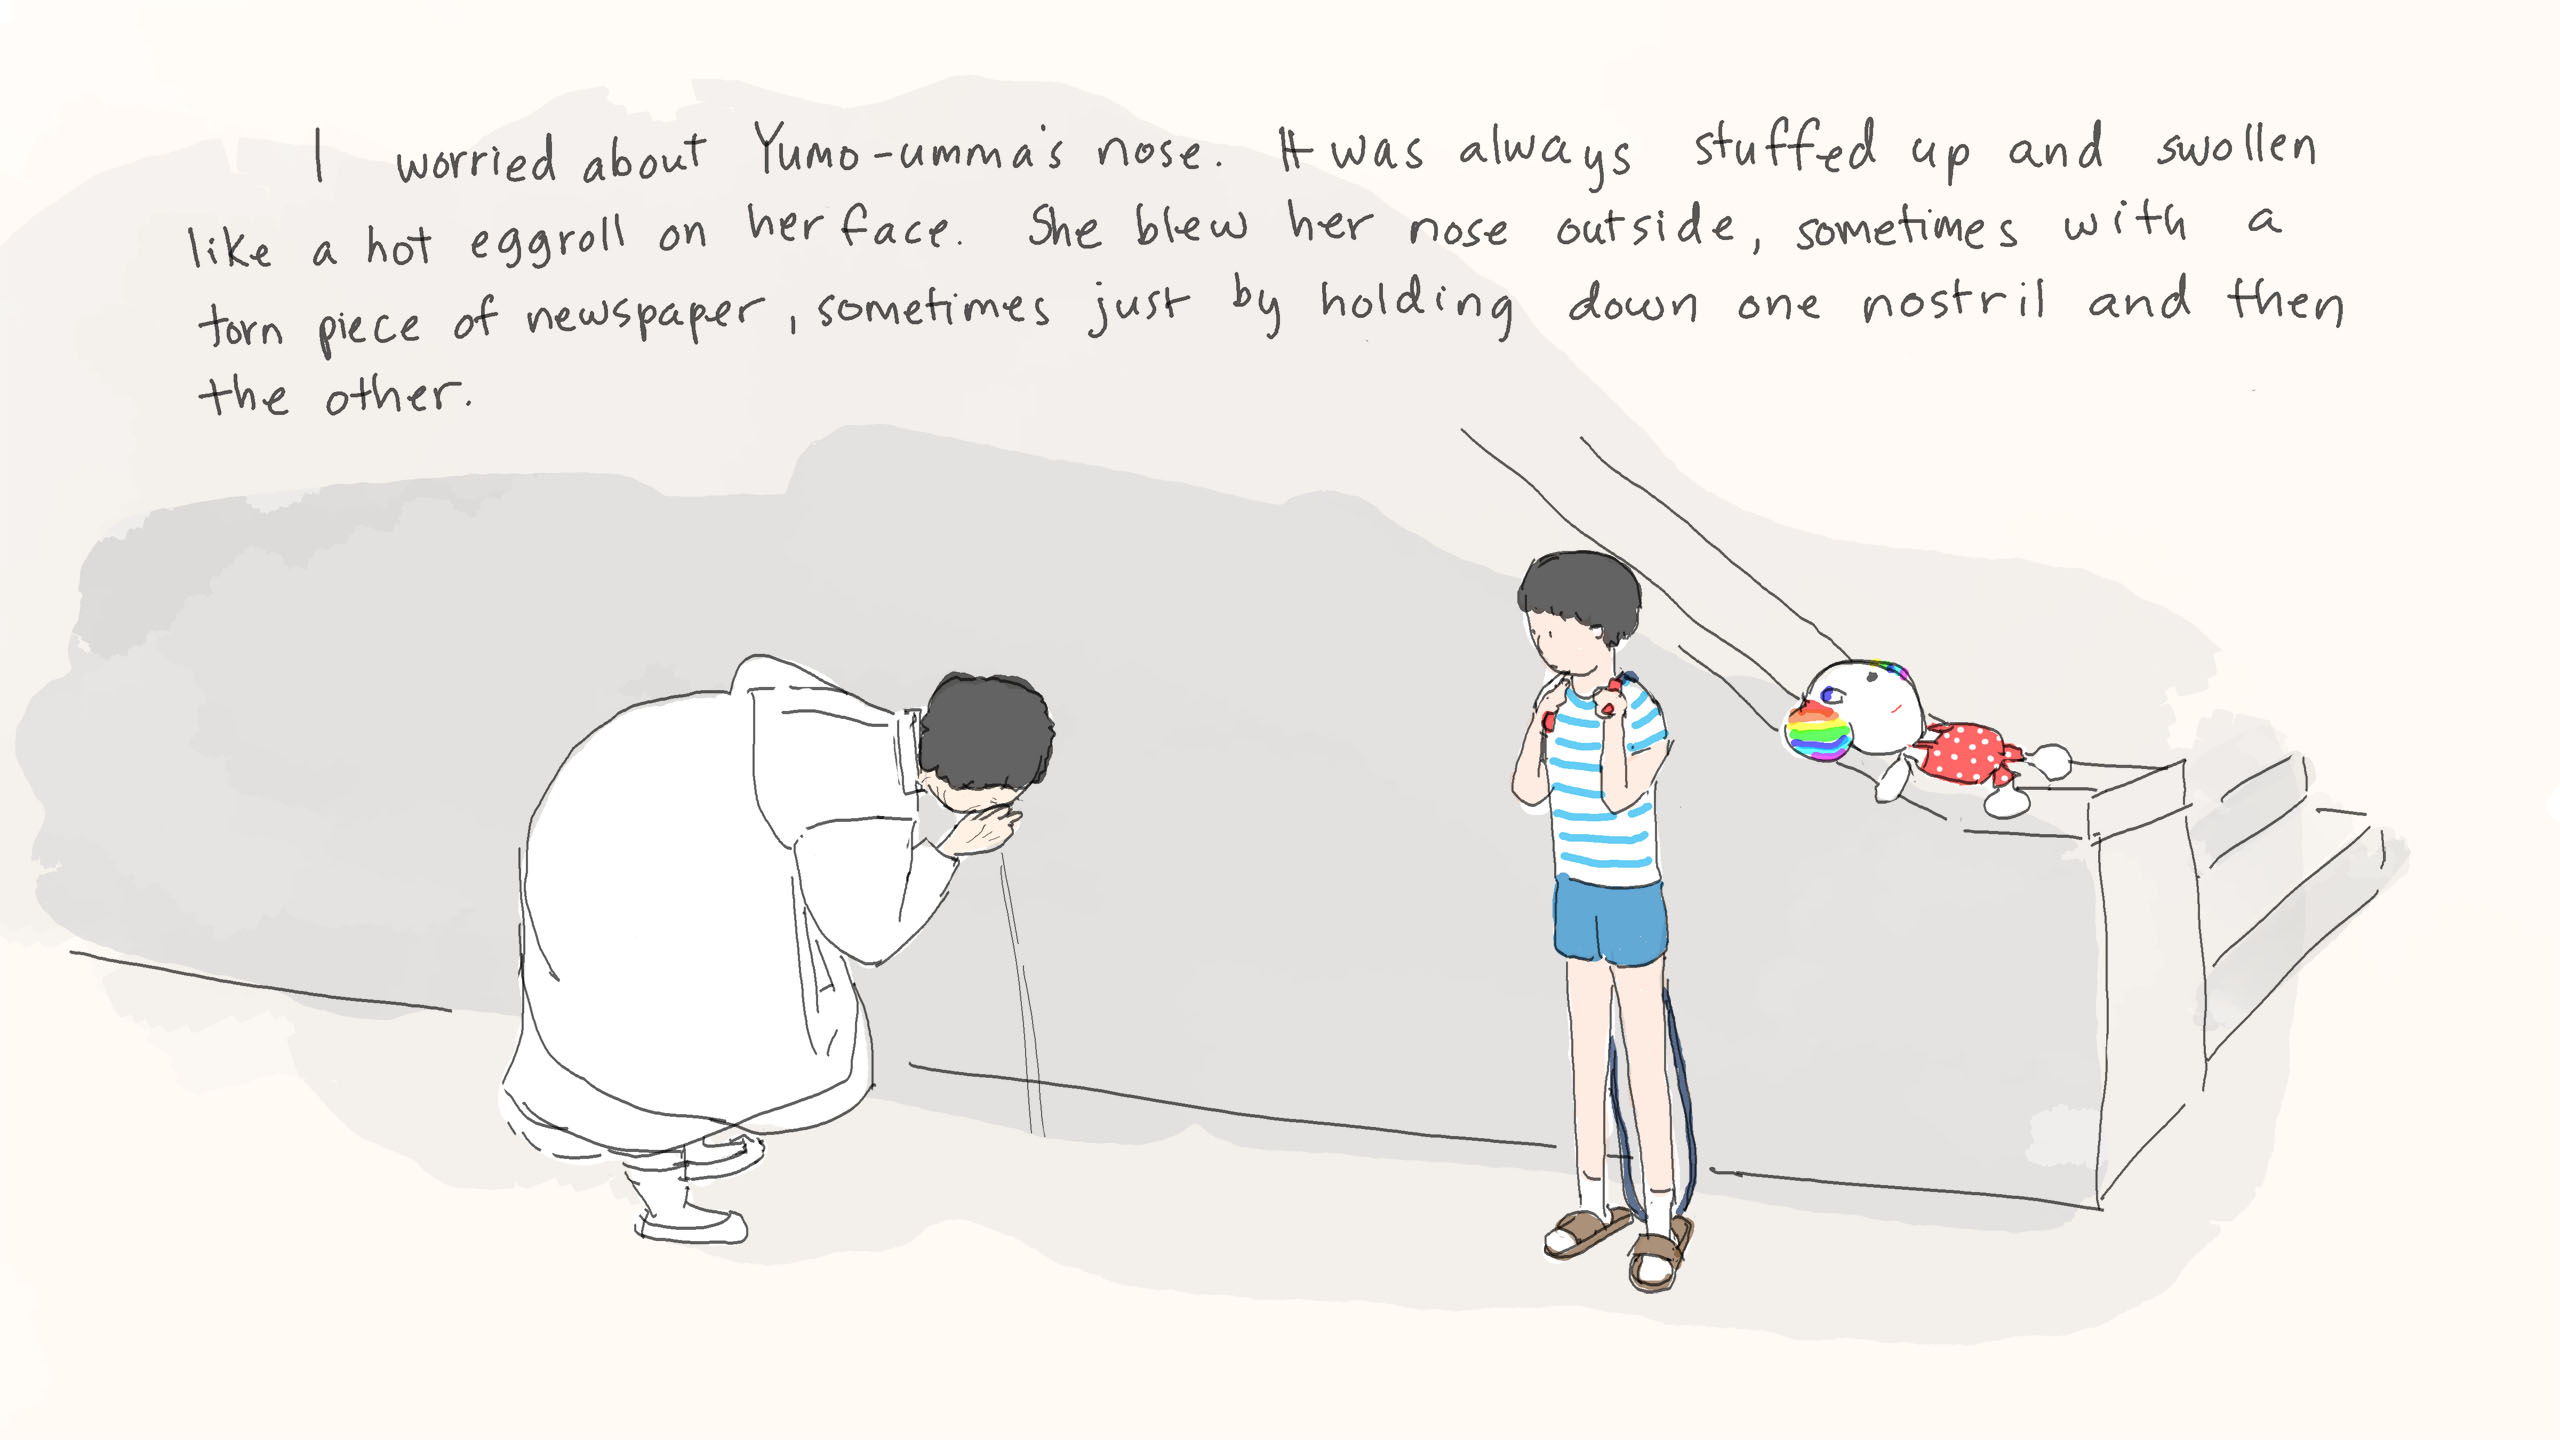 I worried about Yumo-umma's nose. It was always stuffed up and swollen
like a hot eggroll on her face. She blew her nose outside, sometimes with a
torn piece of newspaper, sometimes just by holding down one nostril and then
the other.